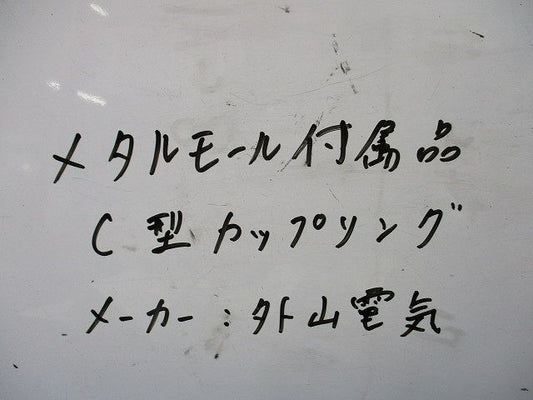 メタルモール付属品
C型カップリング
メーカー:外山電気